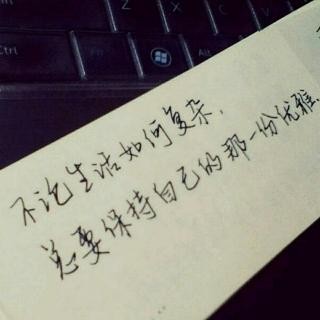 Z
X
Ctrl
Fn
Alt
不论生活如何复杂,
总要保持自己的那一份优雅.